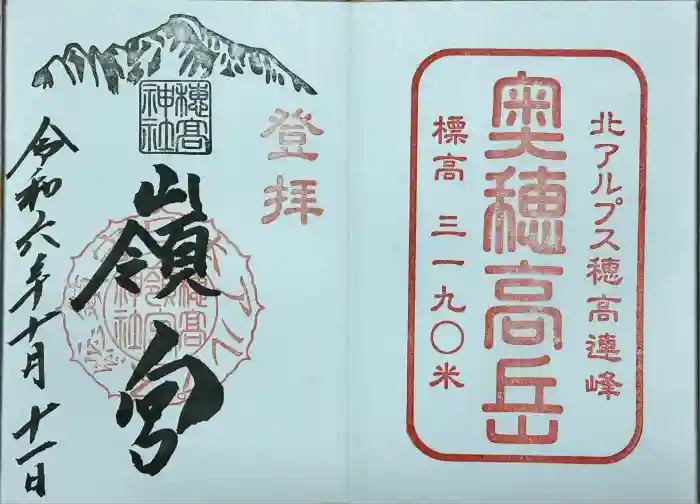 北アルプス穂高連峰
奥穂高岳
標高 三一九〇米
登拝
穂髙
神社
嶺宮
令和六年十月十一日